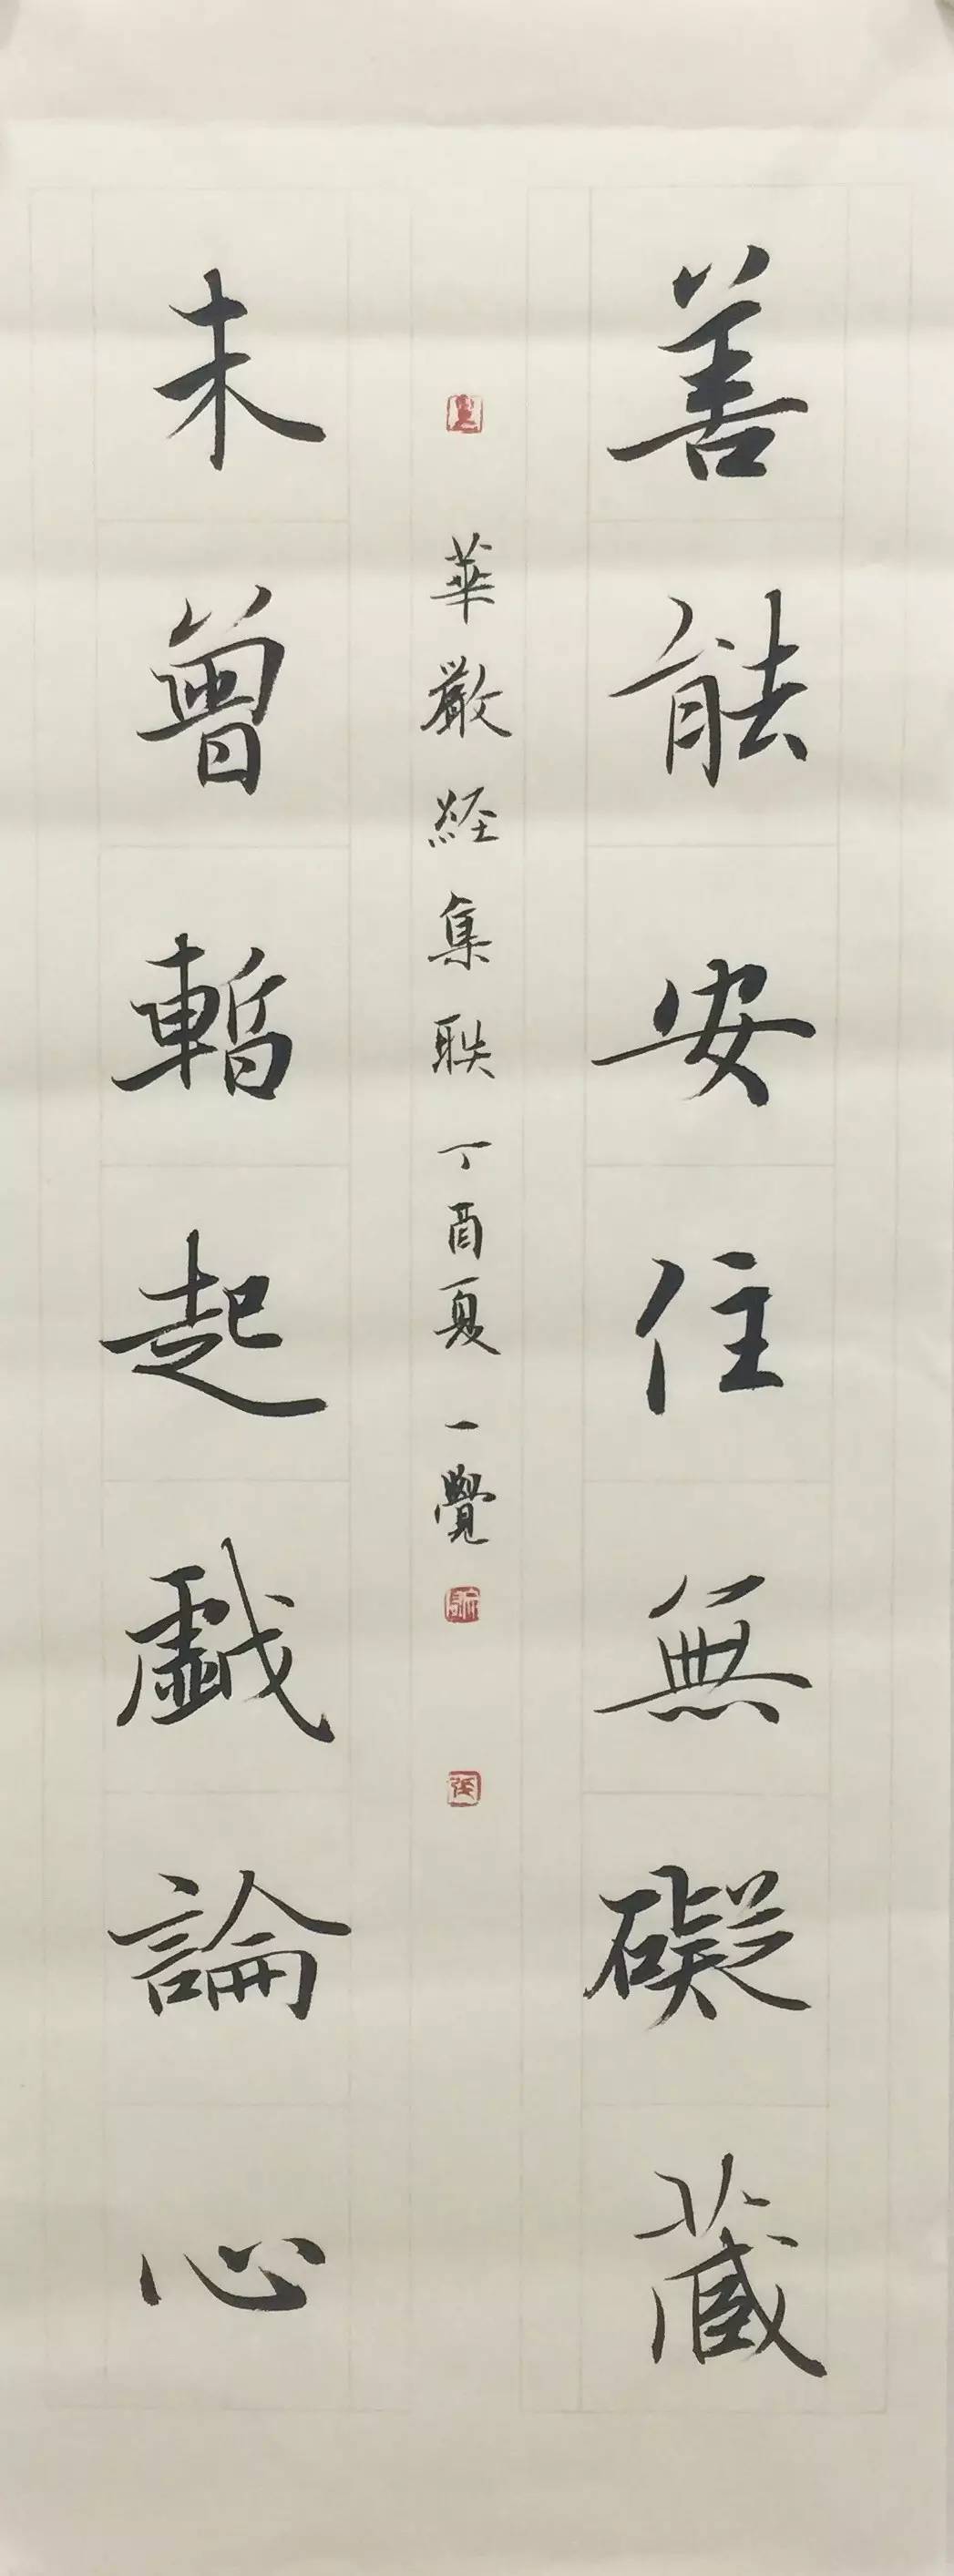 善能安住無礙藏
未曾暫起戲論心
華嚴經集联丁酉夏一覺